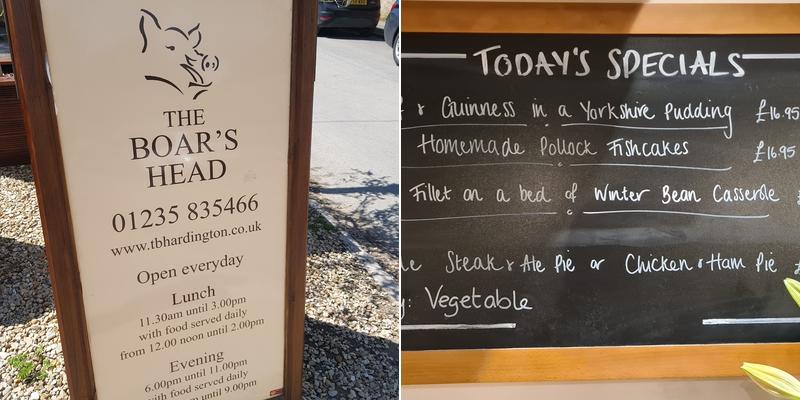 THE
BOAR'S
HEAD
01235 835466
www.tbhardington.co.uk
Open everyday
Lunch
11.30am until 3.00pm
with food served daily
from 12.00 noon until 2.00pm
Evening
6.00pm until 11.00pm
with food served daily
until 9.00pm
TODAY'S SPECIALS
& Guinness in a Yorkshire Pudding £16.95
Homemade Pollock Fishcakes £16.95
Fillet on a bed of Winter Bean Casserole
Steak & Ale Pie or Chicken & Ham Pie
Vegetable